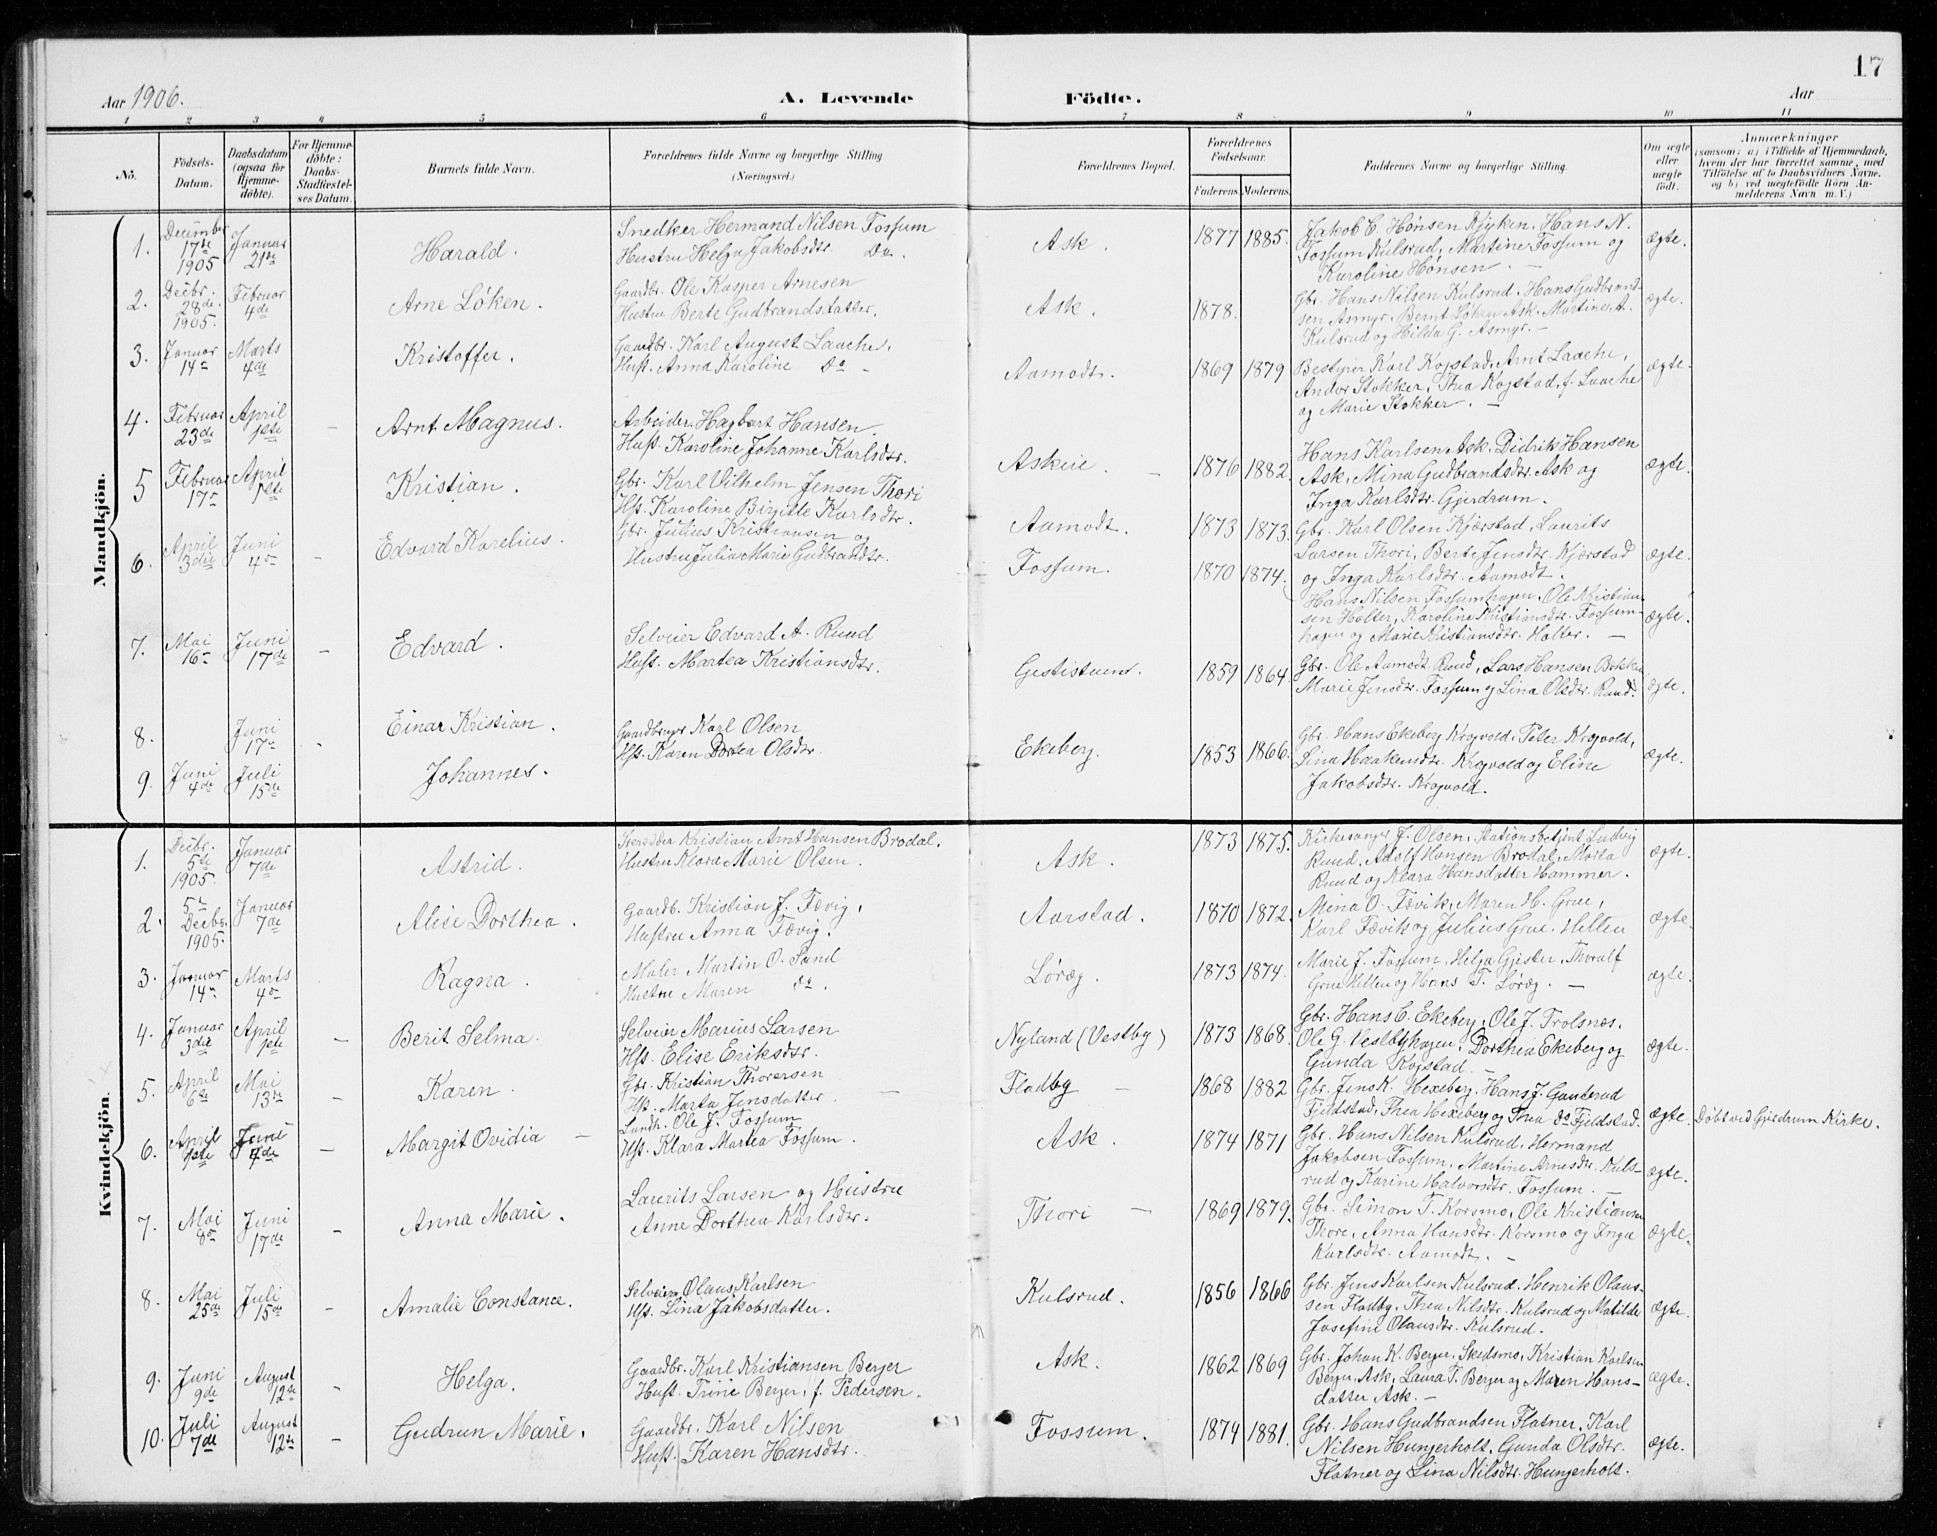 17
Aar 1906.
A. Levende Födte.
Aar
1 2 3 4 5 6 7 8 9 10 11
No.
Födsels-Datum.
Daabsdatum (ogsaa for Hjemmedöbte).
For Hjemmedöbte: Daabs-Stadfæstelses Datum.
Barnets fulde Navn.
Forældrenes fulde Navne og borgerlige Stilling (Næringsvei.)
Forældrenes Bopæl.
Forældrenes Födselsaar.
Faderens. Moderens.
Faddernes Navne og borgerlige Stilling.
Om ægte eller uægte födt.
Anmærkninger
(saasom: a) i Tilfælde af Hjemmedaab, hvem der har forrettet samme, med Tilföielse af to Daabsvidners Navne, og b) ved uægtefödte Börn Anmelderens Navn m. V.)
Mandkjön.
1. December 17de 1905 Januar 21de Harald. Snedker Hermand Nilsen Fossum
Hustru Helga Jakobsdtr. Do. Ask. 1877 1885. Jakob C. Hønsen Kjyken, Hans N.
Fossum Kulsrud, Martine Fossum og
Karoline Hønsen. ægte.
2. Decbr. 28de 1905. Februar 4de Arne Løken. Gaardbr. Ole Kasper Arnesen
Hustru Berte Gudbrandsdatter. Ask. 1878. Gbr. Hans Nilsen Kulsrud, Hans Gudbrand-
sen Asmyr, Bernt Løken Ask, Martine A.
Kulsrud og Hilda G. Asmyr. ægte.
3. Januar 14 Marts 4de Kristoffer. Gaardbr. Karl August Laache,
Hust. Anna Karoline Do Aamodt. 1869 1879 Bestyrer Karl Kogstad, Arnt Laache,
Ander Stokker, Thea Kogstad, f. Laache
og Marie Stokker. ægte.
4. Februar 23de April 1ste Arnt Magnus. Arbeider Hagbart Hansen
Hust. Karoline Johanne Karlsdtr. Askeie. 1876 1882. Hans Karlsen Ask, Didrik Hansen
Ask, Mina Gudbrandsdtr. Ask og
Inga Karlsdtr. Gjerdrum. ægte.
5 Februar 17 April 1ste Kristian. Gbr. Karl Vilhelm Jensen Thori
Hst. Karoline Birgitte Karlsdtr. Aamodt. 1873 1873. Gbr. Karl Olsen Kjærstad, Laurits
Larsen Thori, Berte Jensdtr. Kjærstad
og Inga Karlsdtr. Aamodt. ægte.
6. April 3die Juni 4 Edvard Karelius. Gbr. Julius Kristiansen og
Hustru Julia Marie Gudbrandtr. Fossum. 1870 1874. Hans Nilsen Fossumhagen, Ole Kristian-
sen Holter, Karoline Kristiansdtr. Fossum-
hagen og Marie Kristiansdtr. Holter. ægte.
7. Mai 16 Juni 17de Edvard. Selveier Edvard A. Ruud
Hust. Martea Kristiansdtr. 1859 1864 Gbr. Ole Aamodt Ruud, Lars Hansen Bakken
Marie Jensdtr. Fossum og Lina Olsdtr. Ruud. ægte.
8. Juni 17 Einar Kristian. Gaardbruger Karl Olsen
Hst. Karen Dortea Olsdtr. Ekeberg. 1853 1866. Gbr. Hans Ekeberg Krogvold, Peter Krogvold,
Lina Haakensdtr. Krogvold og Eline
Jakobsdtr. Krogvold. ægte.
9. Juni 4de Juli 15de Johannes.
Kvindekjön.
1. Decbr. 5te 1905. Januar 7de Astrid. Kristian Arnt Hansen Brodal.
Hustru Klara Marie Olsen. Ask. 1873 1875. Kirkesanger J. Olsen, Stationsbetjent Ludvig
Ruud, Adolf Hansen Brodal, Marta
Ruud og Klara Hansdatter Hammer. ægte.
2. 5te Decbr. 1905. Januar 7de Alise Dorthea. Gaardb. Kristian J. Fævig,
Hustru Anna Fævig. Aarstad. 1870 1872. Mina O. Fævik, Maren H. Grue,
Karl Fævik og Julius Grue, Hellen ægte.
3. Januar 14 Marts 4 Ragna. Maler Martin O. Sand
Hustru Maren do. Løræg. 1873 1874. Marie J. Fossum, Helga Gjester, Thoralf
Grue Hellen og Hans T. Løræg. ægte.
4. Januar 3die April 1ste Berit Selma. Selveier Marius Larsen
Hst. Elise Eriksdtr. Nyland (Vestby) 1873 1868. Gbr. Hans C. Ekeberg, Ole J. Trolsnes,
Ole G. Vestbyhagen, Dorthea Ekeberg og
Gunda Kogstad. ægte.
5. April 6te Mai 13de Karen. Gbr. Kristian Thoresen
Hst. Marta Jensdatter. Fladby 1868 1882 Gbr. Jens K. Hexeberg, Hans J. Ganterud
Fjeldstad, Thea Hexeberg og Thea do Fjeldstad. ægte. Döbt ved Gjerdrum Kirke.
6. April 1ste Juni 4de Margit Ovidia Landh. Ole J. Fossum
Hst. Klara Martea Fossum. Ask. 1874 1871 Gbr. Hans Nilsen Kulsrud, Hermand
Jakobsen Fossum, Martine Arnesdtr. Kuls-
rud og Karine Halvorsdtr. Fossum. ægte.
7. Mai 8 Juni 17de Anna Marie. Laurits Larsen og Hustru
Anne Dorthea Karlsdtr. Thori 1869 1879. Gbr. Simon T. Korsmo, Ole Kristiansen
Thore, Anna Hansdtr. Korsmo og Inga
Karlsdtr. Aamodt. ægte.
8. Mai 25de Juli 15de Amalie Constance. Selveier Olaus Karlsen
Hst. Lina Jakobsdatter. Kulsrud. 1856 1866 Gbr. Jens Karlsen Kulsrud, Henrik Olaus-
sen Fladby, Thea Nilsdtr. Kulsrud og Matilde
Josefine Olausdtr. Kulsrud. ægte.
9. Juni 9de August 12te Helga. Gaardbr. Karl Kristiansen Berger
Hust. Trine Berger, f. Pedersen. Ask. 1862 1869 Gbr. Johan K. Berger, Skedsmo, Kristian Karlsen
Berger, Ask, Laura T. Berger og Maren Hans-
datter Ask. ægte.
10. Juli 7de August 12te Gudrun Marie. Gaardbr. Karl Nilsen
Hust. Karen Hansdtr. Fossum. 1874 1881. Gbr. Hans Gudbrandsen Flatner, Karl
Nilsen Hungerholt, Gunda Olsdtr.
Flatner og Lina Nilsdtr. Hungerholt. ægte.